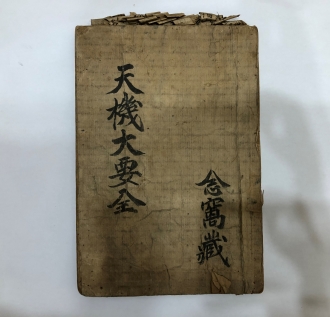 天機大要全
念窩藏